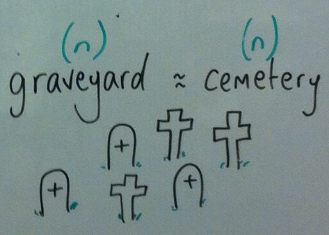 (n) (n)
graveyard ≈ cemetery